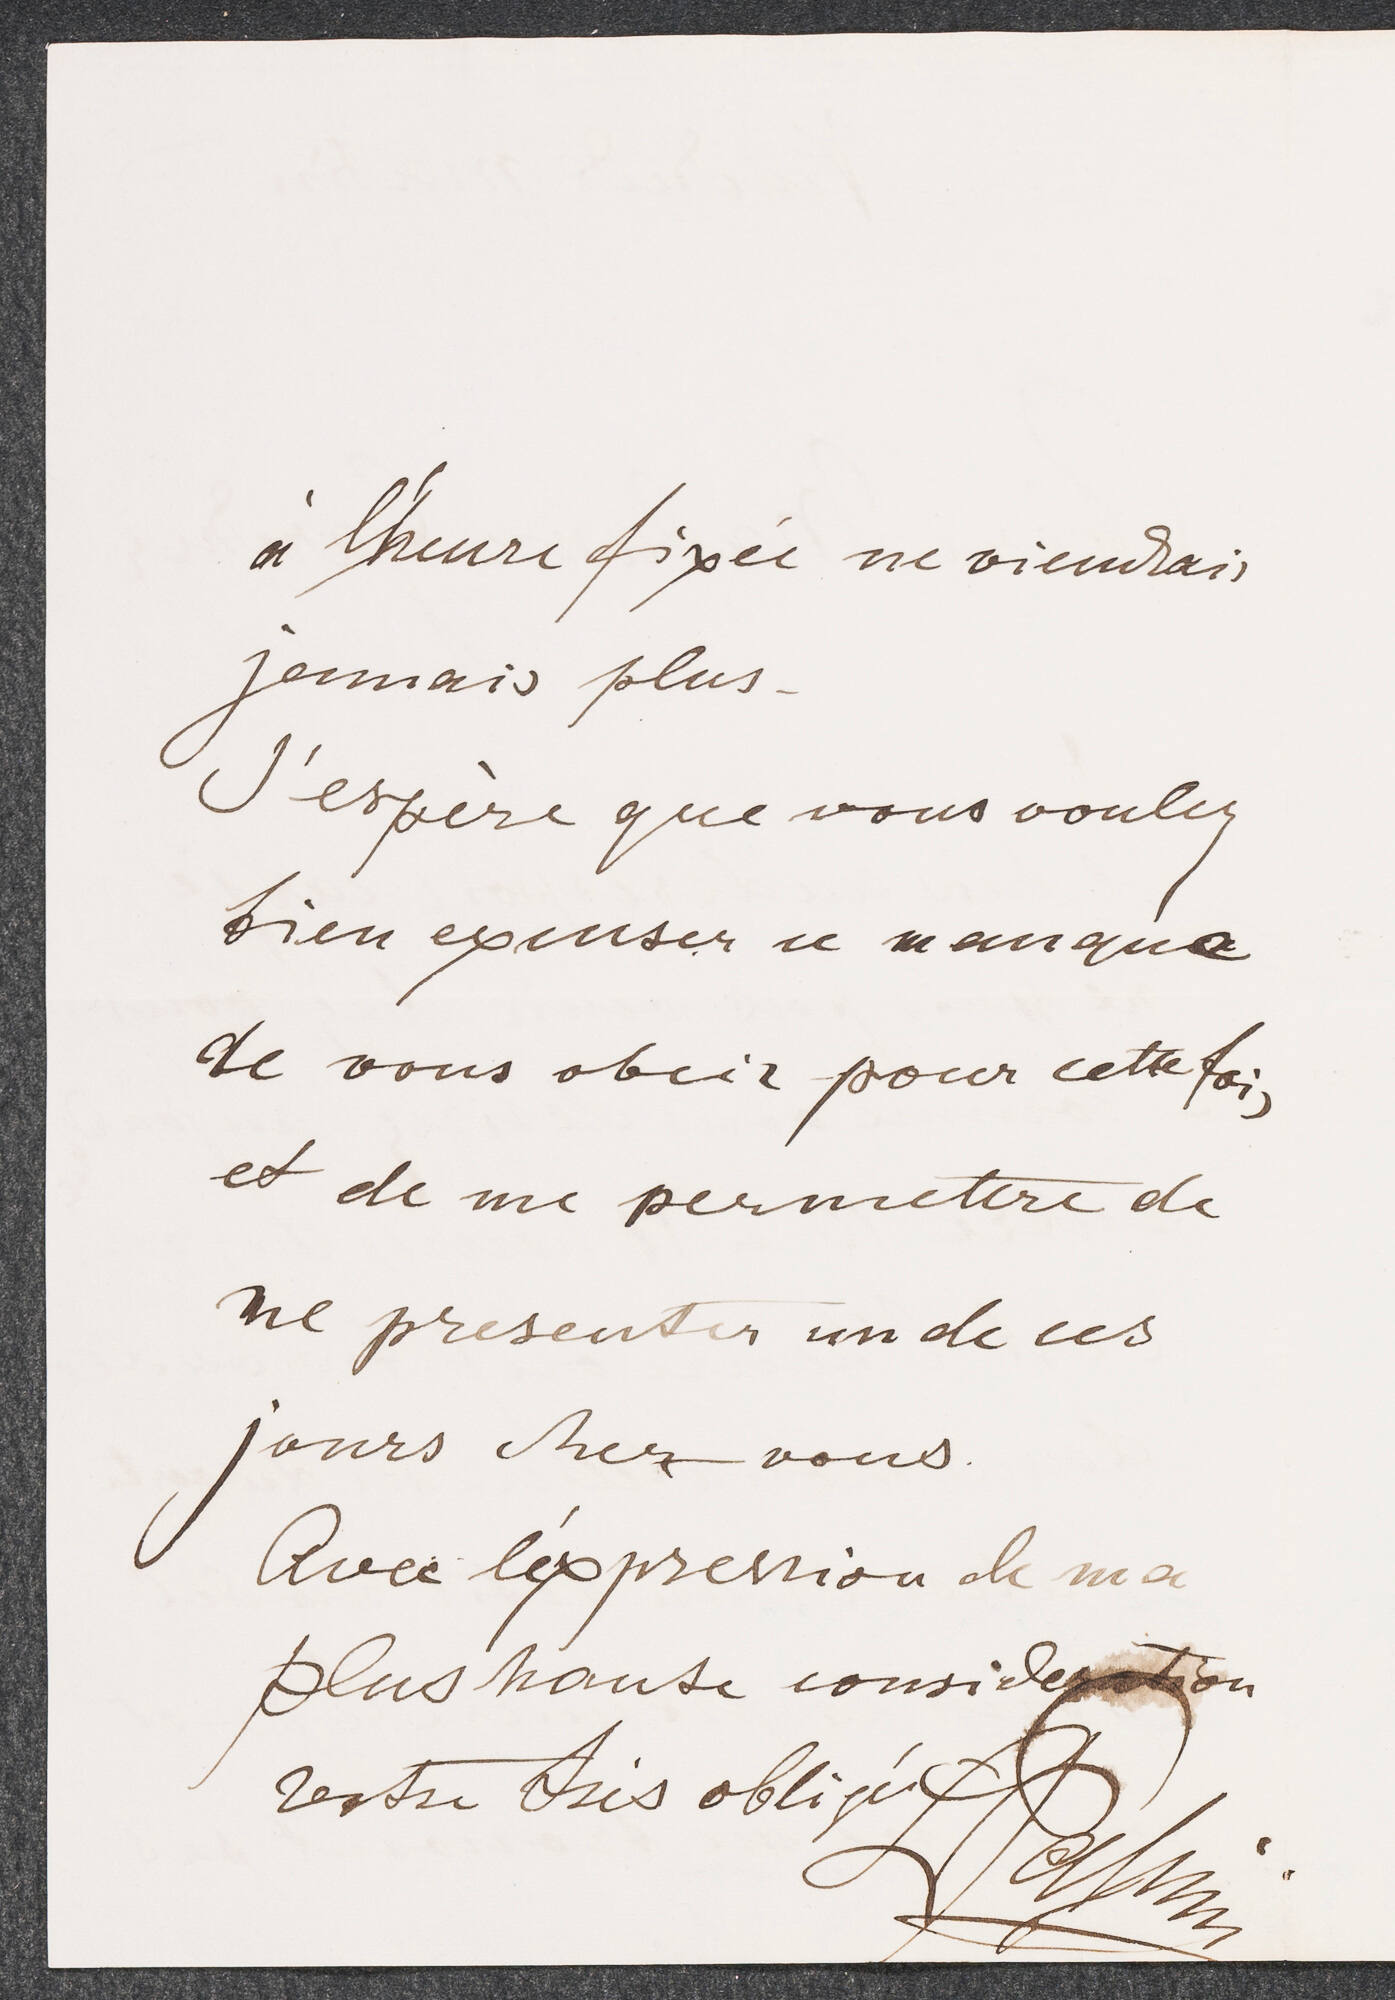 à l'heure fixée ne viendrais
jamais plus -
J'espère que vous voulez
bien excuser ce manque
de vous obeir pour cette fois,
et de me permettere de
me presenter un de ces
jours chez vous.
Avec l'éxpression de ma
plus haute consideration
votre très obligé